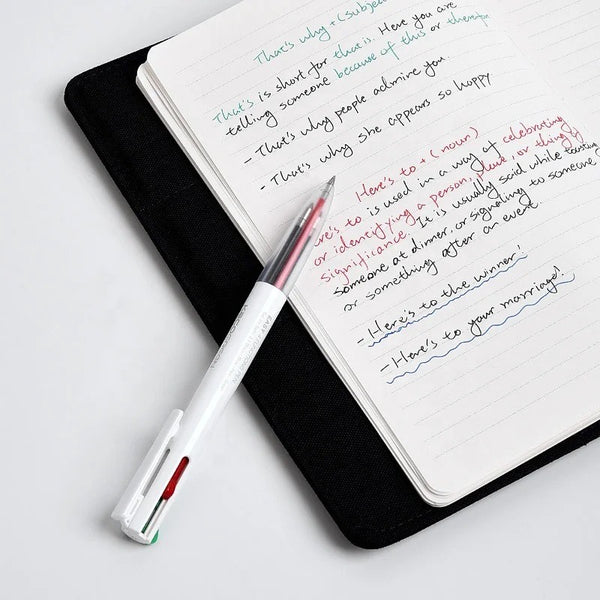 That's why + (subject
That's is short for that is. Here you are
telling someone because of this or therefore
- That's why people admire you.
- That's why she appears so happy
Here's to + (noun)
re's to is used in a way of celebrating
or identifying a person, place, or thing of
significance. It is usually said while toasting
someone at dinner, or signaling to someone
or something after an event.
- Here's to the winner!
- Here's to your marriage!